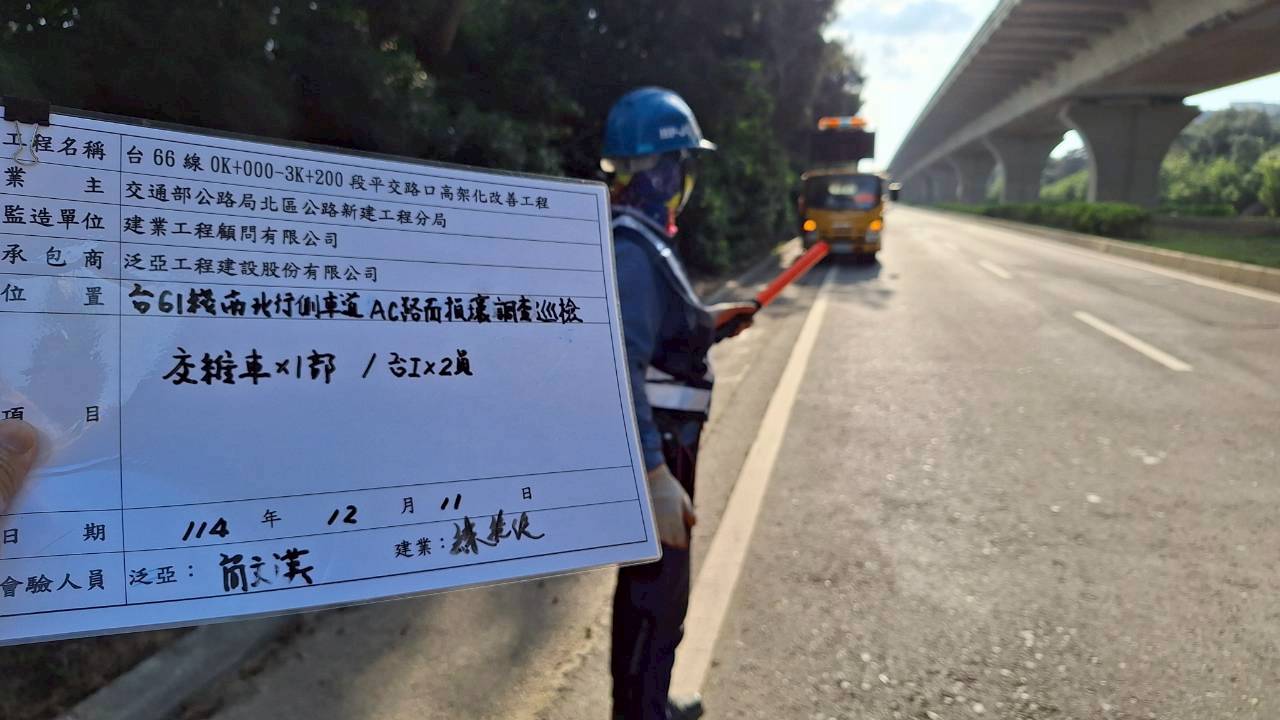 工程名稱 台66線0K+000-3K+200段平交路口高架化改善工程
業主 交通部公路局北區公路新建工程分局
監造單位 建業工程顧問有限公司
承包商 泛亞工程建設股份有限公司
位置 台61綫南北行側車道AC路面損壞調查巡檢
項目 交維車x1部 / 台工x2員
日期 114年12月11日
會驗人員 泛亞: 簡文漢 建業: